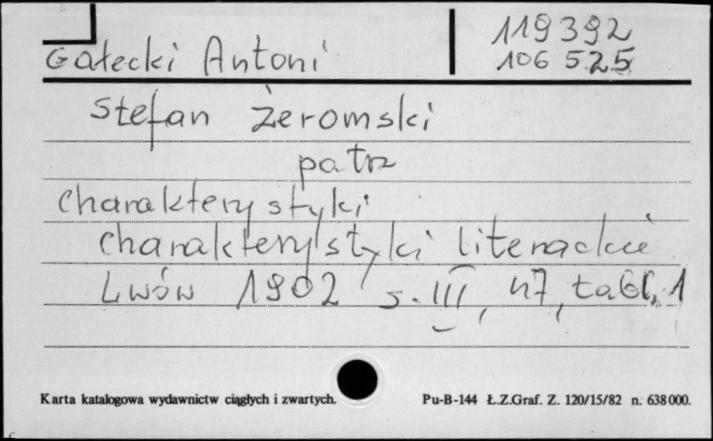 Gałecki Antoni 119392
106 525
Stefan Żeromski
patrz
Charakterystyki
Charakterystyki literackie
Lwów 1902 s. III, 47, tabl. 1
Karta katalogowa wydawnictw ciągłych i zwartych. Pu-B-144 Ł.Z.Graf. Z. 120/15/82 n. 638000.